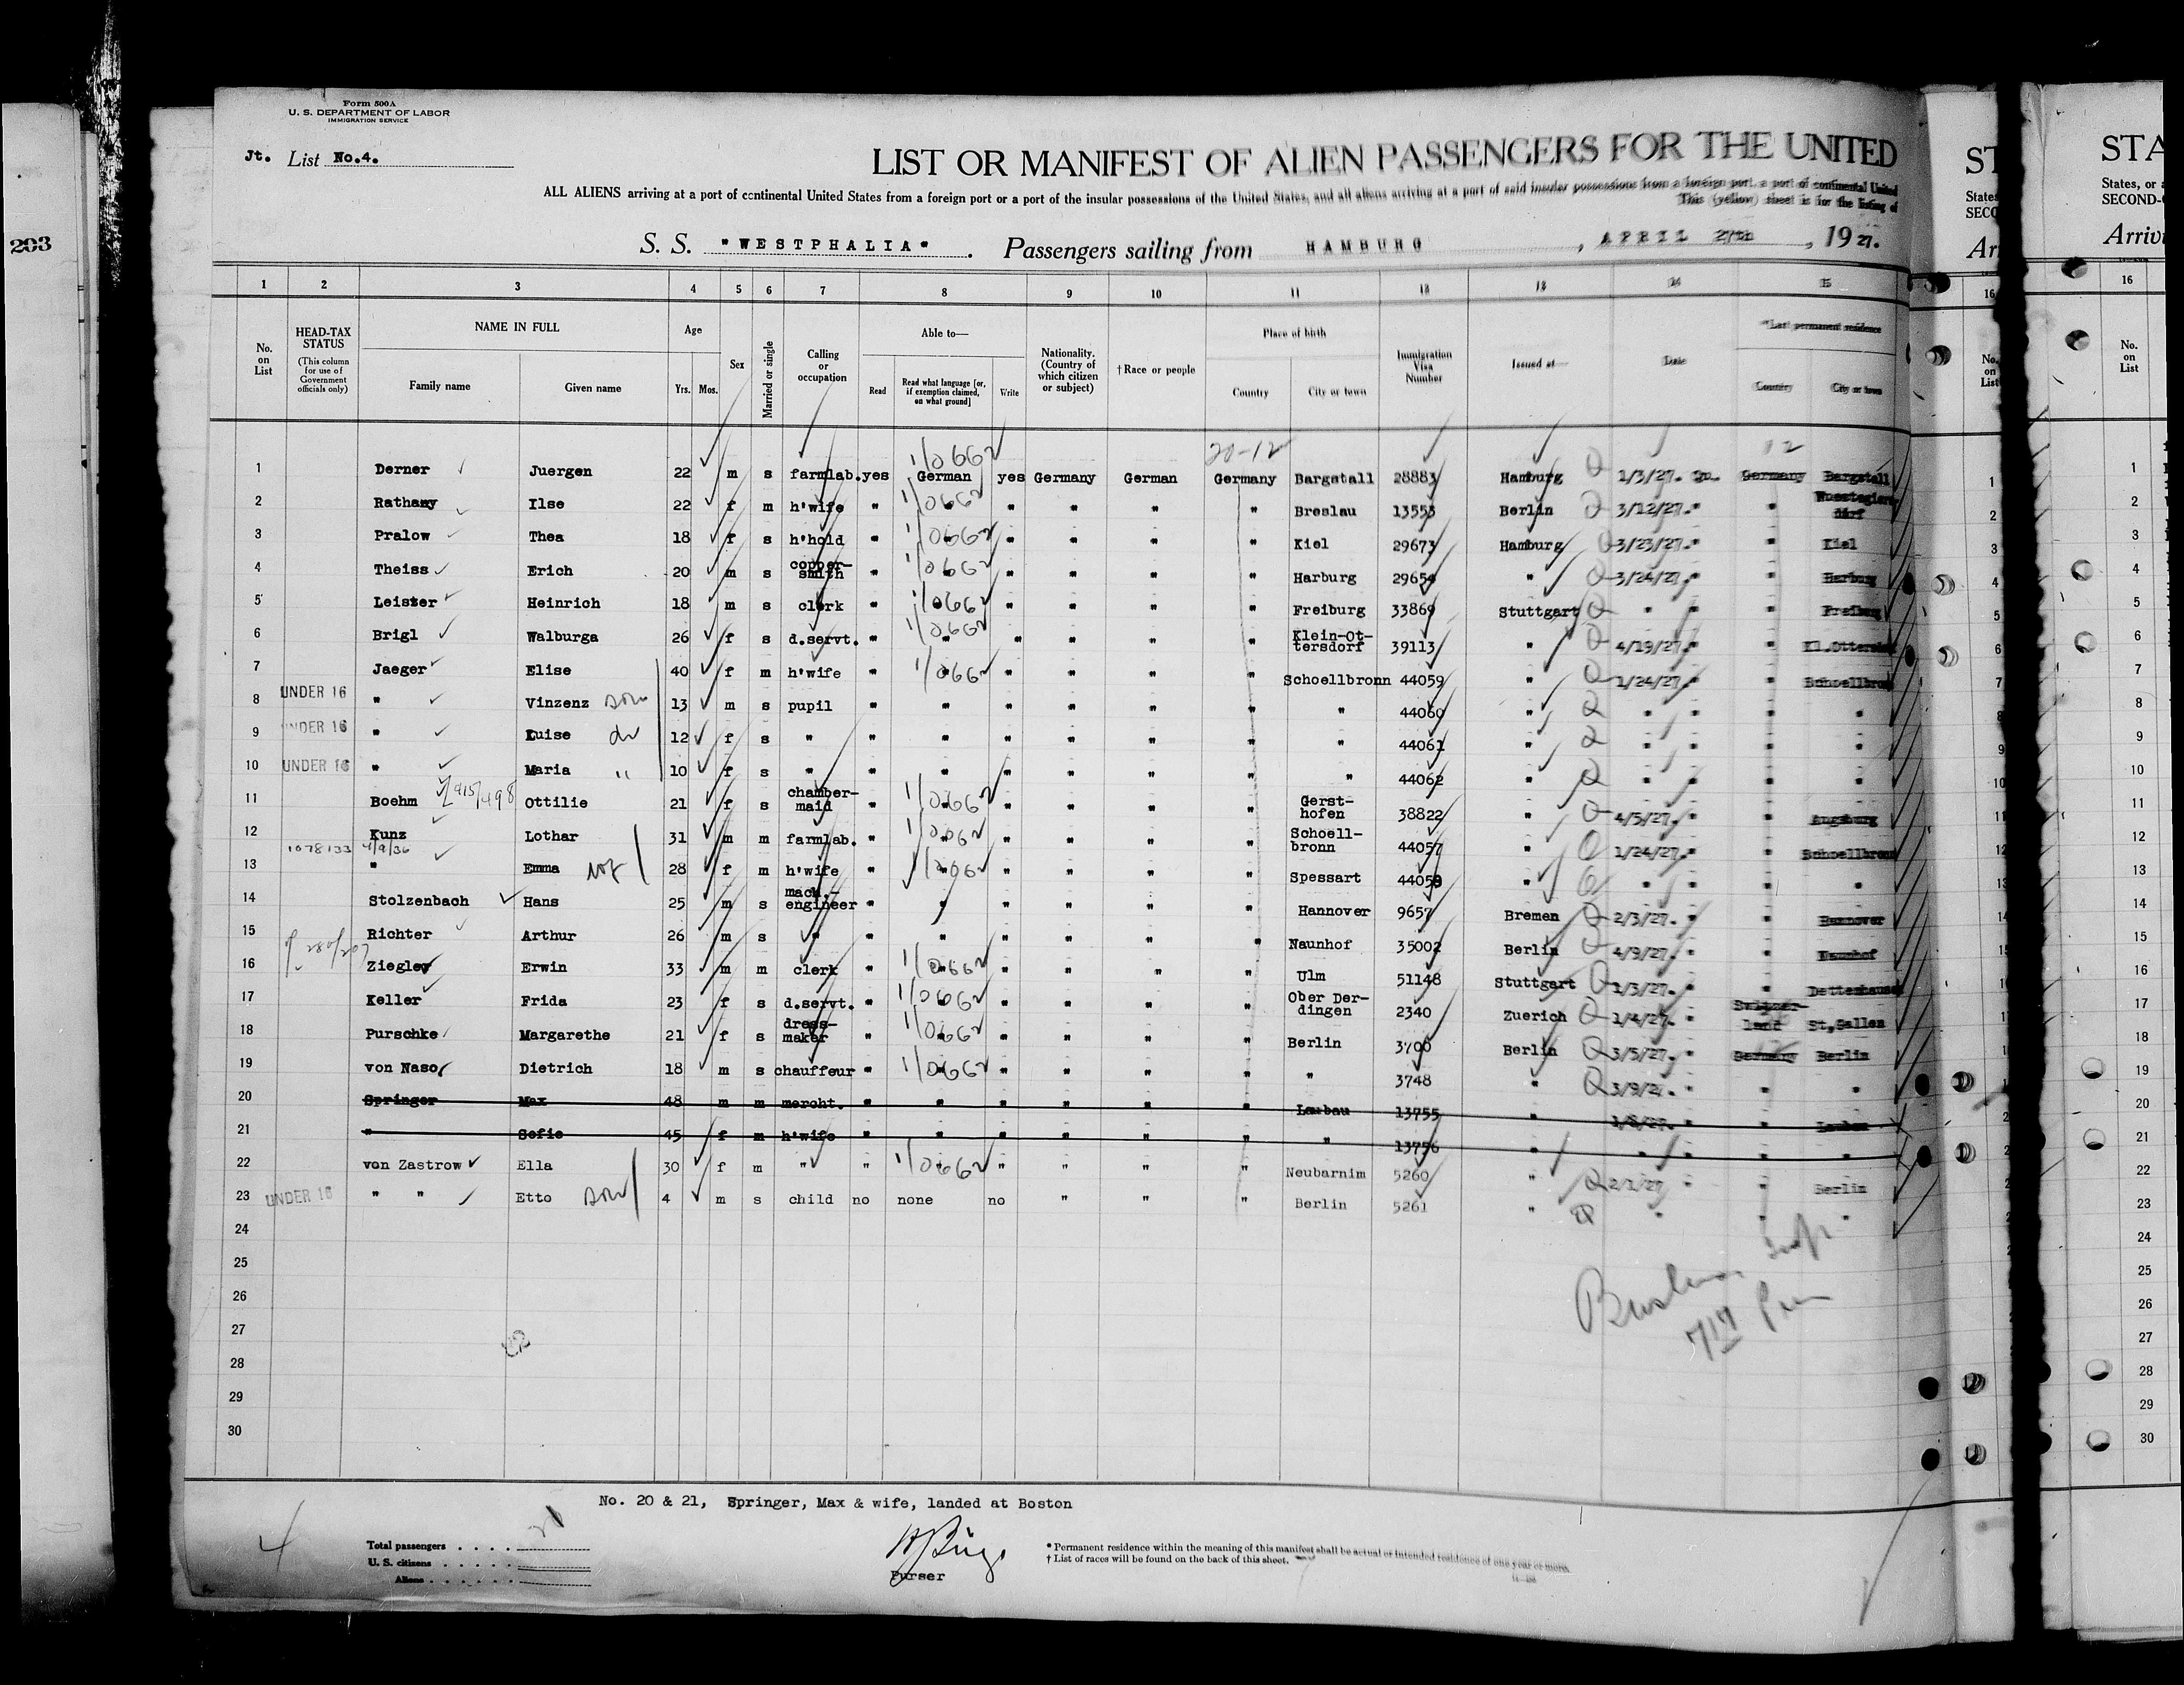 203
Form 500A
U. S. DEPARTMENT OF LABOR
IMMIGRATION SERVICE
Jt. List No.4.
LIST OR MANIFEST OF ALIEN PASSENGERS FOR THE UNITED
ALL ALIENS arriving at a port of continental United States from a foreign port or a port of the insular possessions of the United States, and all aliens arriving at a port of said insular possessions from a foreign port, a port of continental United
This (yellow) sheet is for the listing of
S. S. "WESTPHALIA". Passengers sailing from HAMBURG, APRIL 27th, 1927.
1 2 3 4 5 6 7 8 9 10 11 12 13 14 15
No. on List
HEAD-TAX STATUS (This column for use of Government officials only)
NAME IN FULL Family name Given name
Age Yrs. Mos.
Sex
Married or single
Calling or occupation
Able to— Read Read what language [or, if exemption claimed, on what ground] Write
Nationality. (Country of which citizen or subject)
† Race or people
Place of birth Country City or town
Immigration Visa Number
Issued at—
Date
*Last permanent residence Country City or town
20-12 12
1 Derner Juergen 22 m s farmlab. yes German yes Germany German Germany Bargstall 28883 Hamburg 1/3/27. Germany Bargstall
2 Rathany Ilse 22 f m h'wife " " " " " " Breslau 13553 Berlin 3/12/27. " "
3 Pralow Thea 18 f s h'hold " " " " " " Kiel 29673 Hamburg 3/23/27. " " Kiel
4 Theiss Erich 20 m s copper-smith " " " " " " Harburg 29654 " 3/24/27. " " Harburg
5 Leister Heinrich 18 m s clerk " " " " " " Freiburg 33869 Stuttgart " " " Freiburg
6 Brigl Walburga 26 f s d.servt. " " " " " " Klein-Ottersdorf 39113 " 4/19/27. " "
7 Jaeger Elise 40 f m h'wife " " " " " " Schoellbronn 44059 " 1/24/27. " " Schoellbronn
8 UNDER 16 " Vinzenz son 13 m s pupil " " " " " " " 44060 " " " " "
9 UNDER 16 " Luise 12 f s " " " " " " " " 44061 " " " " "
10 UNDER 16 " Maria " 10 f s " " " " " " " " 44062 " " " " "
11 Boehm Ottilie 21 f s chamber-maid " " " " " " Gerst-hofen 38822 " 4/5/27. " " Augsburg
12 Kunz Lothar 31 m m farmlab. " " " " " " Schoell-bronn 44057 " 1/24/27. " " Schoellbronn
1078133 4/9/36
13 " Emma 28 f m h'wife " " " " " " Spessart 44058 " " " " "
14 Stolzenbach Hans 25 m s mach.-engineer " " " " " " Hannover 9657 Bremen 2/3/27. " " Hannover
15 Richter Arthur 26 m s " " " " " " " Naunhof 35002 Berlin 4/9/27. " " Naunhof
16 Ziegler Erwin 33 m m clerk " " " " " " Ulm 51148 Stuttgart " " Dettenhausen
17 Keller Frida 23 f s d.servt. " " " " " " Ober Der-dingen 2340 Zuerich 1/4/27. " Switzer-land St,Gallen
18 Purschke Margarethe 21 f s dress-maker " " " " " " Berlin 3700 Berlin 3/5/27. " Germany Berlin
19 von Naso Dietrich 18 m s chauffeur " " " " " " " 3748 " 3/9/27. " " "
20 Springer Max 48 m m mercht. " " " " " " Laubau 13755 " " " Lauban
21 " Sofie 45 f m h'wife " " " " " " " 13756 " " " " "
22 von Zastrow Ella 30 f m " " " " " " " Neubarnim 5260 " " " Berlin
23 UNDER 16 " " Etto son 4 m s child no none no " " " Berlin 5261 " " " "
24
25
26
27
28
29
30
No. 20 & 21, Springer, Max & wife, landed at Boston
4
Total passengers
U. S. citizens
Aliens
Purser
* Permanent residence within the meaning of this manifest shall be actual or intended residence of one year or more.
† List of races will be found on the back of this sheet.
STA
States, or
SECOND-
Arriv
16
No. on List
1
2
3
4
5
6
7
8
9
10
11
12
13
14
15
16
17
18
19
20
21
22
23
24
25
26
27
28
29
30